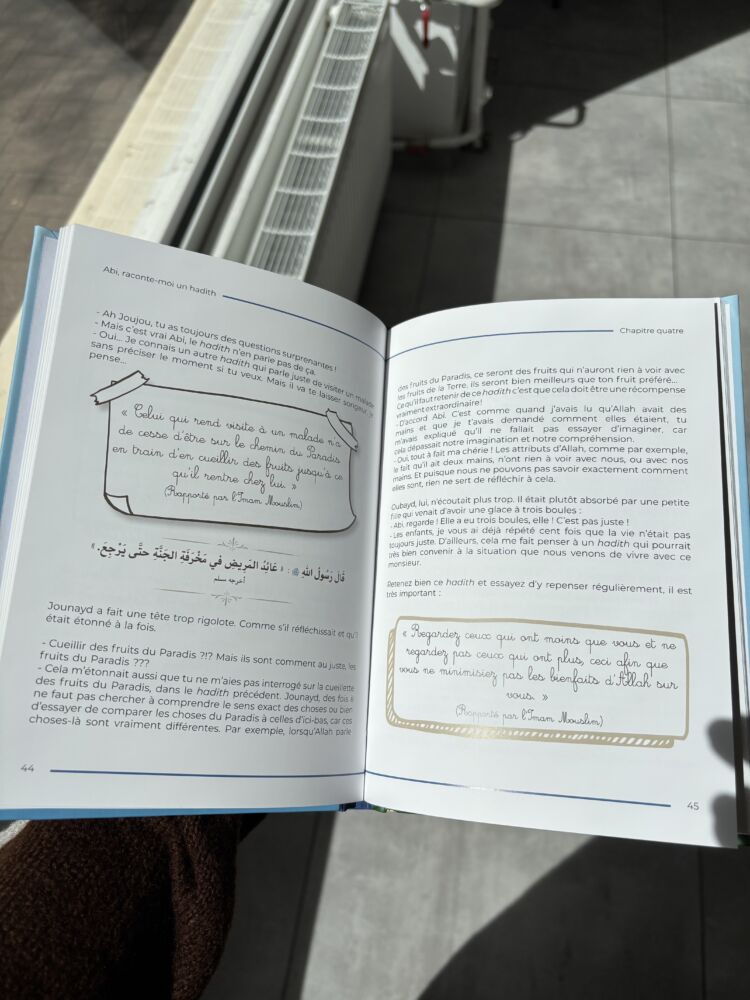 Abi, raconte-moi un hadith
- Ah Joujou, tu as toujours des questions surprenantes !
- Mais c'est vrai Abi, le hadith n'en parle pas de ça.
- Oui... Je connais un autre hadith qui parle juste de visiter un malade
sans préciser le moment si tu veux. Mais il va te laisser songeur, je
pense...
« Celui qui rend visite à un malade n'a
de cesse d'être sur le chemin du Paradis
en train d'en cueillir des fruits jusqu'à ce
qu'il rentre chez lui. »
(Rapporté par l'Imam Mouslim)
قَالَ رَسُولُ اللهِ ﷺ : « عَائِدُ المَرِيضِ فِي مَخْرَفَةِ الجَنَّةِ حَتَّى يَرْجِعَ. »
أخرجه مسلم
Jounayd a fait une tête trop rigolote. Comme s'il réfléchissait et qu'il
était étonné à la fois.
- Cueillir des fruits du Paradis ?!? Mais ils sont comment au juste, les
fruits du Paradis ???
- Cela m'étonnait aussi que tu ne m'aies pas interrogé sur la cueillette
des fruits du Paradis, dans le hadith précédent. Jounayd, des fois il
ne faut pas chercher à comprendre le sens exact des choses ou bien
d'essayer de comparer les choses du Paradis à celles d'ici-bas, car ces
choses-là sont vraiment différentes. Par exemple, lorsqu'Allah parle
44
Chapitre quatre
des fruits du Paradis, ce seront des fruits qui n'auront rien à voir avec
les fruits de la Terre. Ils seront bien meilleurs que ton fruit préféré...
Ce qu'il faut retenir de ce hadith c'est que cela doit être une récompense
vraiment extraordinaire!
- D'accord Abi. C'est comme quand j'avais lu qu'Allah avait des
mains et que je t'avais demandé comment elles étaient, tu
m'avais expliqué qu'il ne fallait pas essayer d'imaginer, car
cela dépassait notre imagination et notre compréhension.
- Oui, tout à fait ma chérie ! Les attributs d'Allah, comme par exemple,
le fait qu'il ait deux mains, n'ont rien à voir avec nous, ou avec nos
mains. Et puisque nous ne pouvons pas savoir exactement comment
elles sont, rien ne sert de réfléchir à cela.
Oubayd, lui, n'écoutait plus trop. Il était plutôt absorbé par une petite
fille qui venait d'avoir une glace à trois boules :
- Abi, regarde ! Elle a eu trois boules, elle ! C'est pas juste !
- Les enfants, je vous ai déjà répété cent fois que la vie n'était pas
toujours juste. D'ailleurs, cela me fait penser à un hadith qui pourrait
très bien convenir à la situation que nous venons de vivre avec ce
monsieur.
Retenez bien ce hadith et essayez d'y repenser régulièrement, il est
très important :
« Regardez ceux qui ont moins que vous et ne
regardez pas ceux qui ont plus, ceci afin que
vous ne minimisiez pas les bienfaits d'Allah sur
vous. »
(Rapporté par l'Imam Mouslim)
45